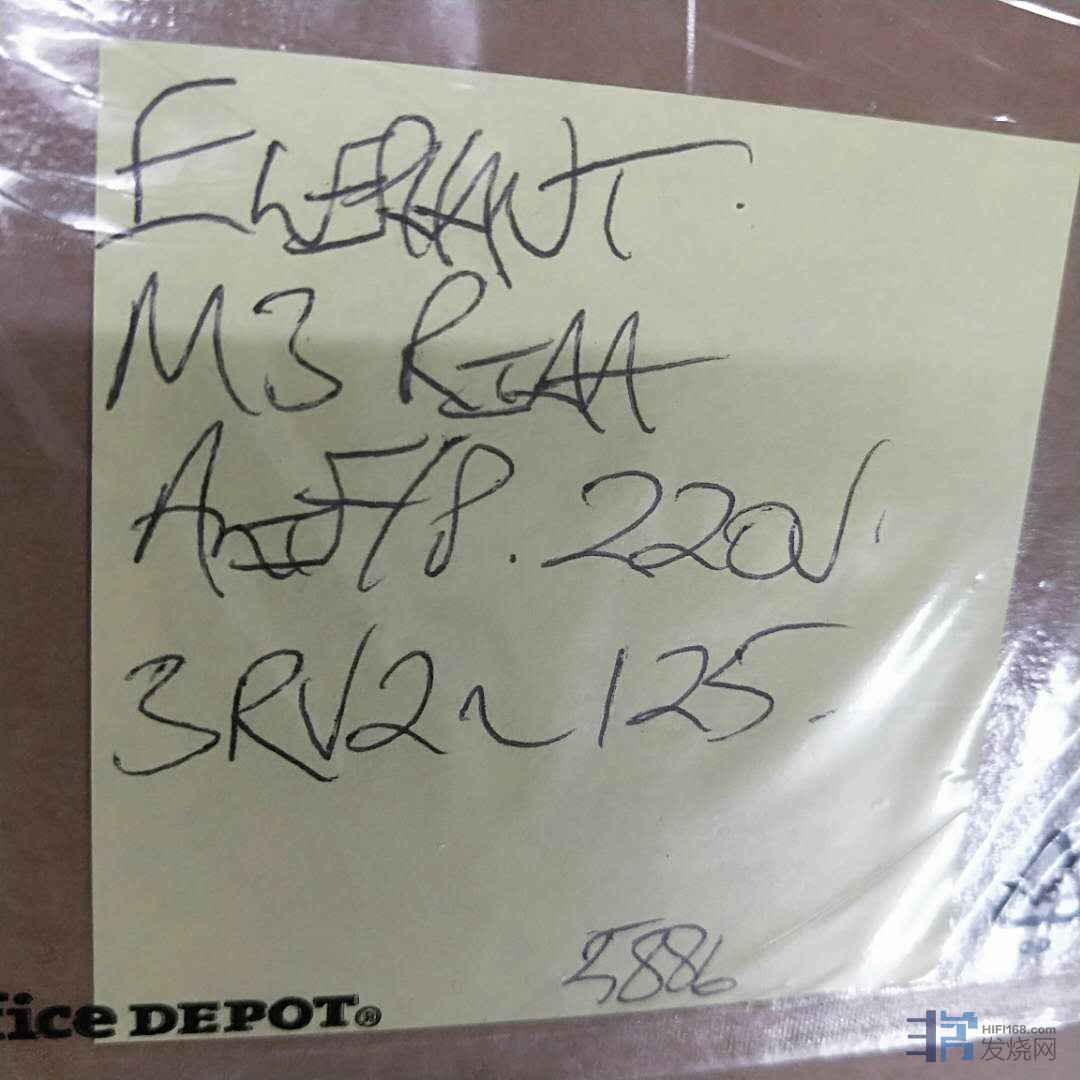 ELEPHANT.
M3 RIAA
AMP. 220V.
3RV2~125.
5886
fice DEPOT®
HIFI168.com
发烧网